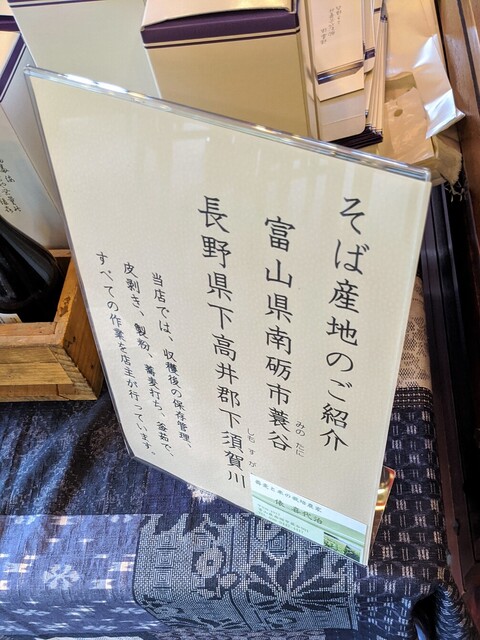 そば産地のご紹介
富山県南砺市蓑谷
みの たに
長野県下高井郡下須賀川
しも す が
当店では、収穫後の保存管理、
皮剥き、製粉、蕎麦打ち、釜茹で、
すべての作業を店主が行っています。